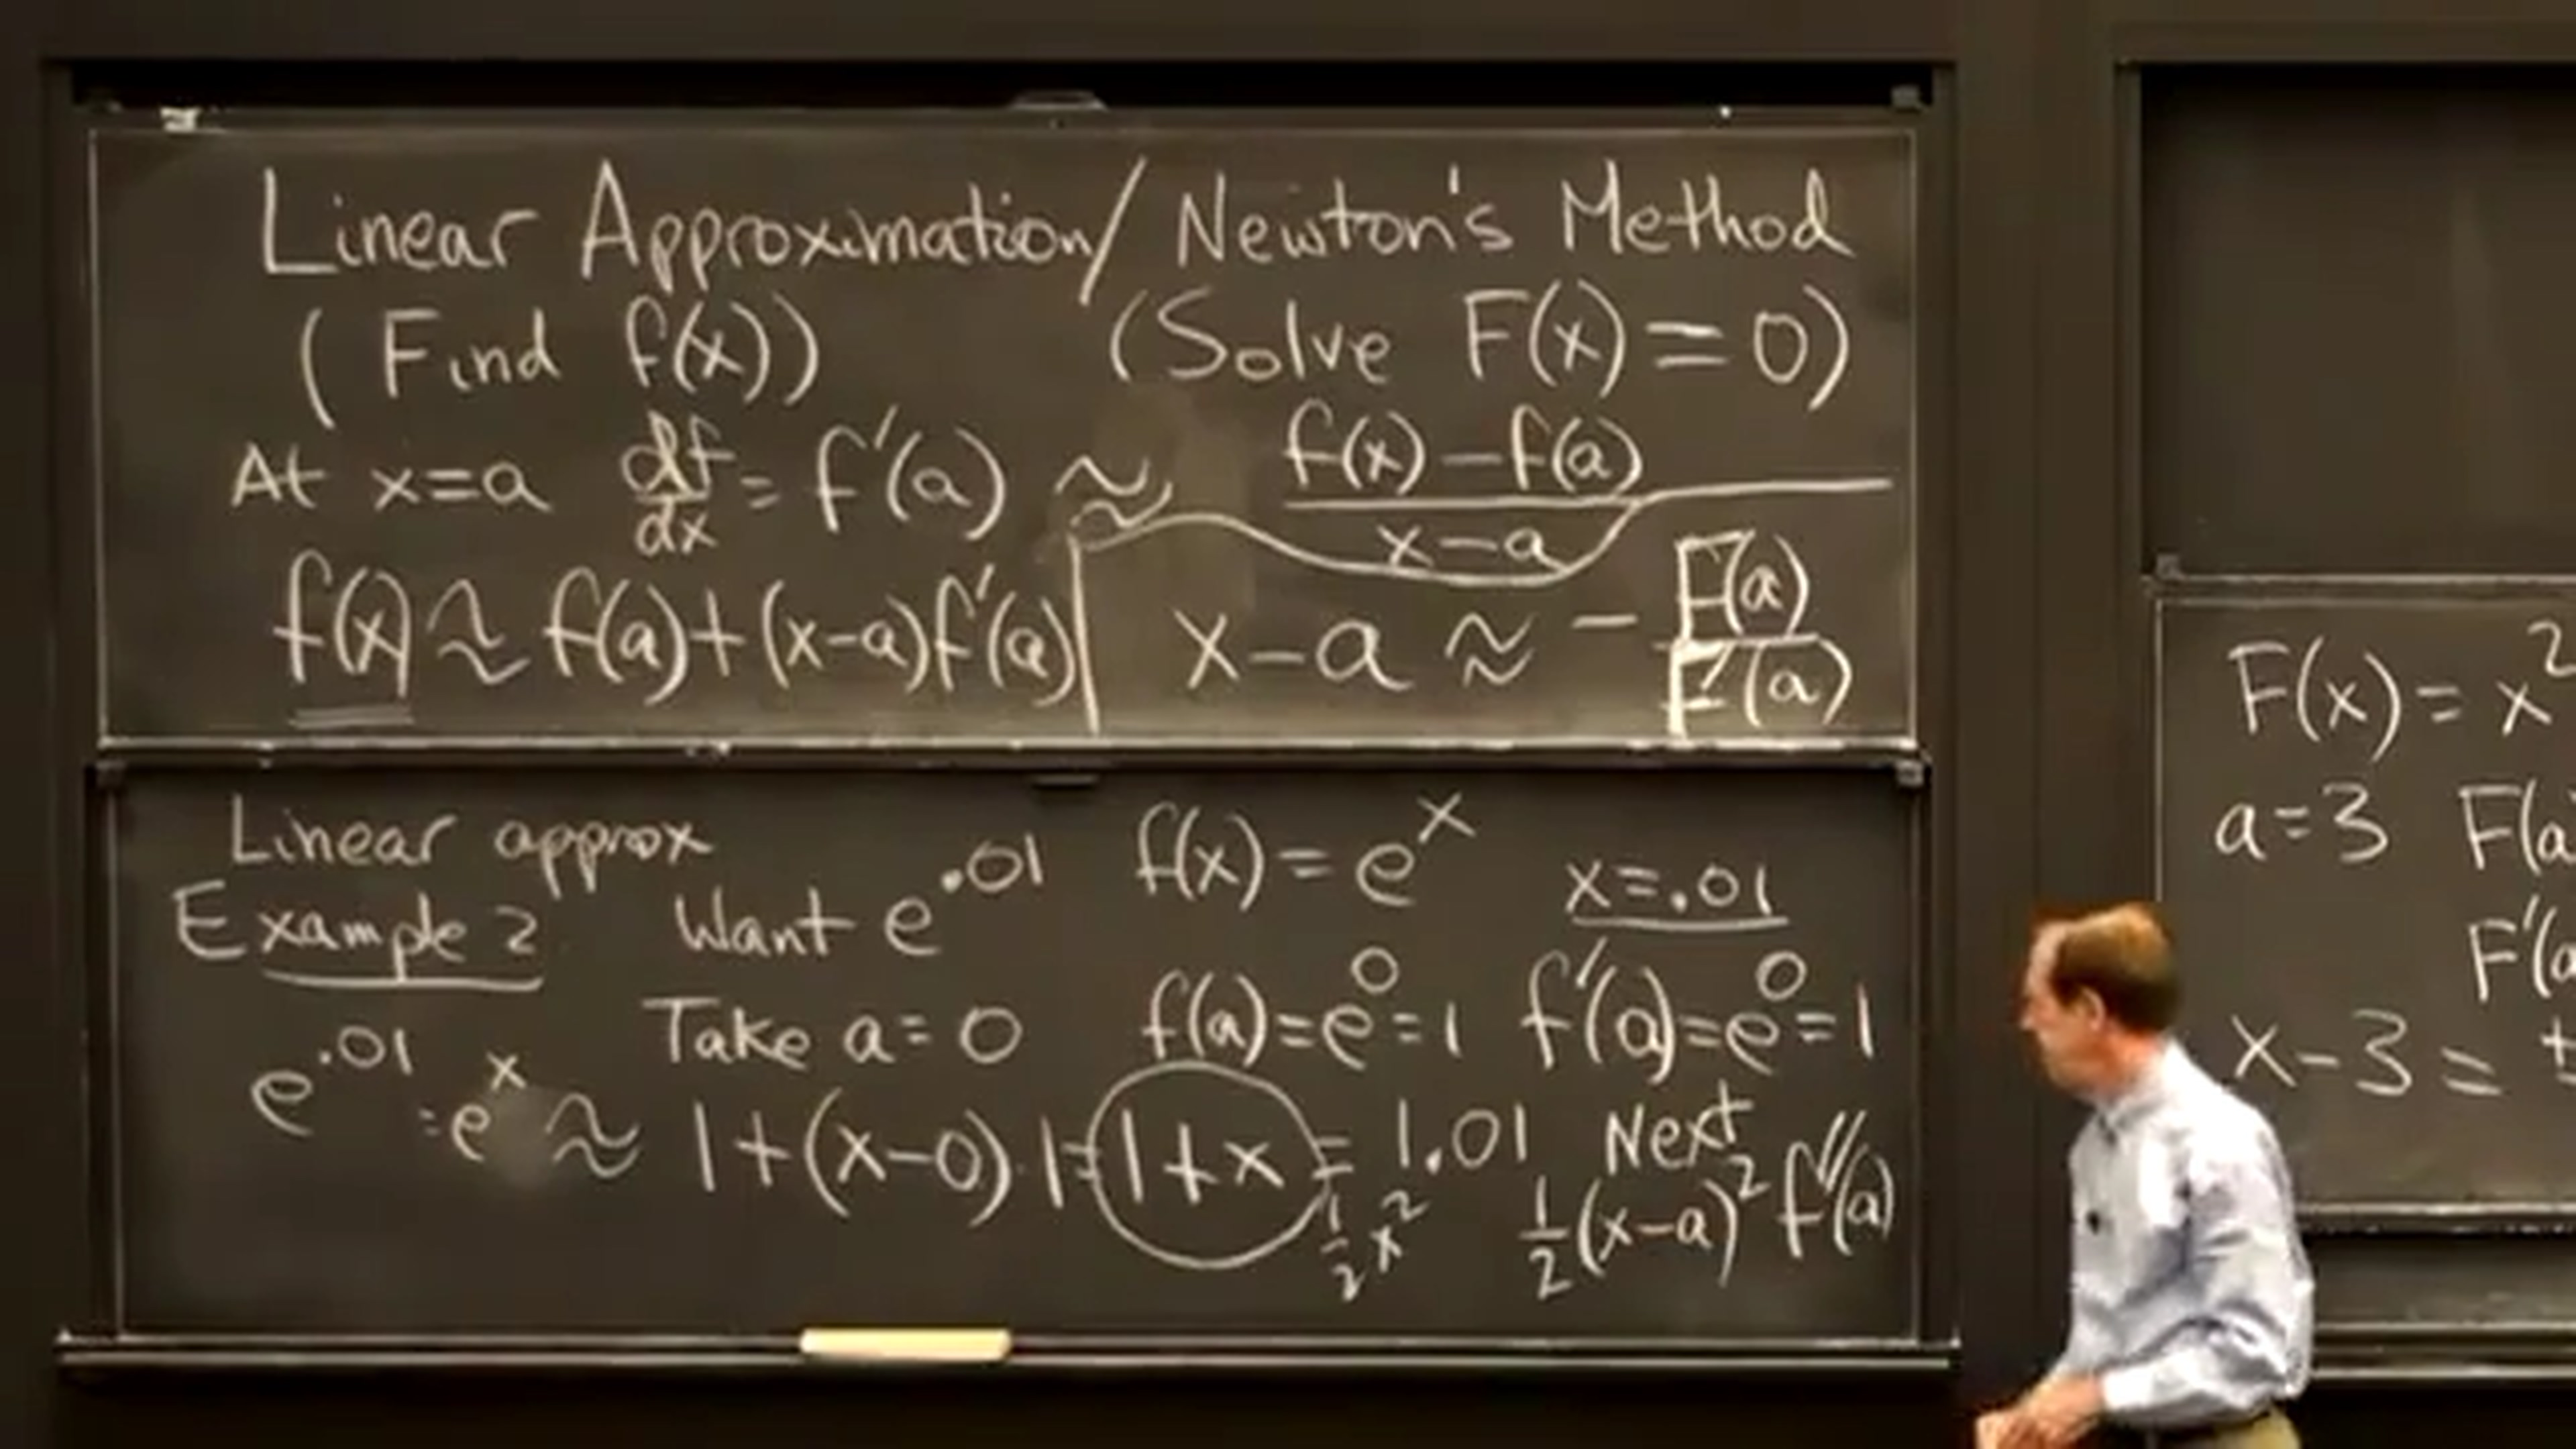 Linear Approximation/ Newton's Method
(Find f(x)) (Solve F(x)=0)
At x=a df/dx = f'(a) ≈ f(x)-f(a) / x-a
f(x) ≈ f(a)+(x-a)f'(a) x-a ≈ - F(a)/F'(a)
Linear approx
Example 2 Want e^.01 f(x)=e^x x=.01
Take a=0 f(a)=e^0=1 f'(a)=e^0=1
e^.01 =e^x ≈ 1+(x-0)·1=1+x = 1.01 Next
1/2 x^2 1/2(x-a)^2 f''(a)
F(x)=x^2
a=3 F(a
F'(a
x-3=